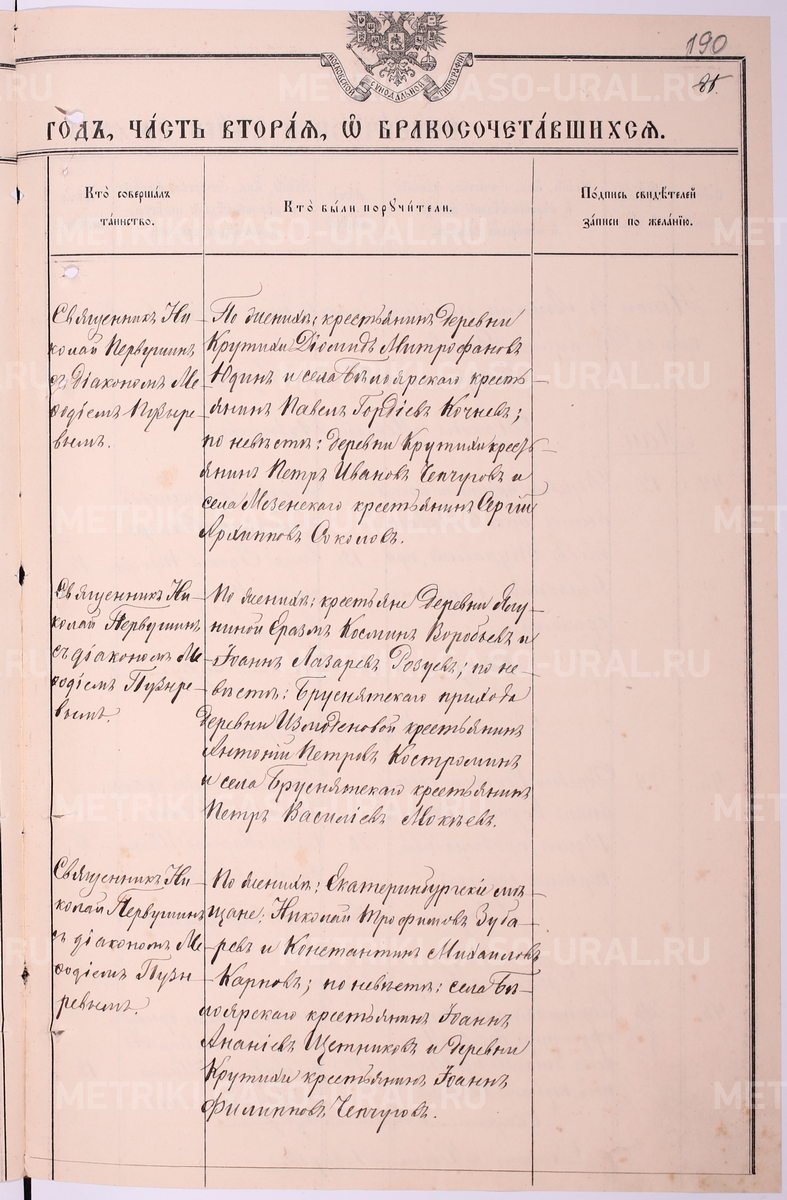 190
МОСКОВСКОЙ СѴНОДАЛЬНОЙ ТИПОГРАФІИ
ГОДЪ, ЧА́СТЬ ВТОРА́Я, Ѽ БРАКОСОЧЕТА́ВШИХСЯ.
Кто̀ соверша́лъ
та́инство.
Кто̀ бы́ли порꙋчи́тели.
По́дпись свидѣ́телей
за́писи по жела́нїю.
Священникъ Ни-
колай Первушинъ
съ діакономъ Ме-
ѳодіемъ Пузыре-
вымъ.
По женихѣ: крестьянинъ деревни
Крутихи Діомидъ Митрофановъ
Юдинъ и села Бѣлоярскаго кресть-
янинъ Павелъ Гордіевъ Кочневъ;
по невѣстѣ: деревни Крутихи кресть-
янинъ Петръ Ивановъ Чепчуговъ и
села Мезенскаго крестьянинъ Сергій
Архипповъ Соколовъ.
Священникъ Ни-
колай Первушинъ
съ діакономъ Ме-
ѳодіемъ Пузыре-
вымъ.
По женихѣ: крестьяне деревни Ялу-
ниной Еразмъ Косминъ Воробьевъ и
Іоаннъ Лазаревъ Розуевъ; по не-
вѣстѣ: Бруснятскаго прихода
деревни Измоденовой крестьянинъ
Антоній Петровъ Костроминъ
и села Бруснятскаго крестьянинъ
Петръ Василіевъ Мокѣевъ.
Священникъ Ни-
колай Первушинъ
съ діакономъ Ме-
ѳодіемъ Пузы-
ревымъ.
По женихѣ: Екатеринбургскіе мѣ-
щане: Николай Трофимовъ Зуба-
ревъ и Константинъ Михаиловъ
Карповъ; по невѣстѣ: села Бѣ-
лоярскаго крестьянинъ Іоаннъ
Ананіевъ Щетниковъ и деревни
Крутихи крестьянинъ Іоаннъ
Филипповъ Чепчуговъ.
METRIKI.GASO-URAL.RU